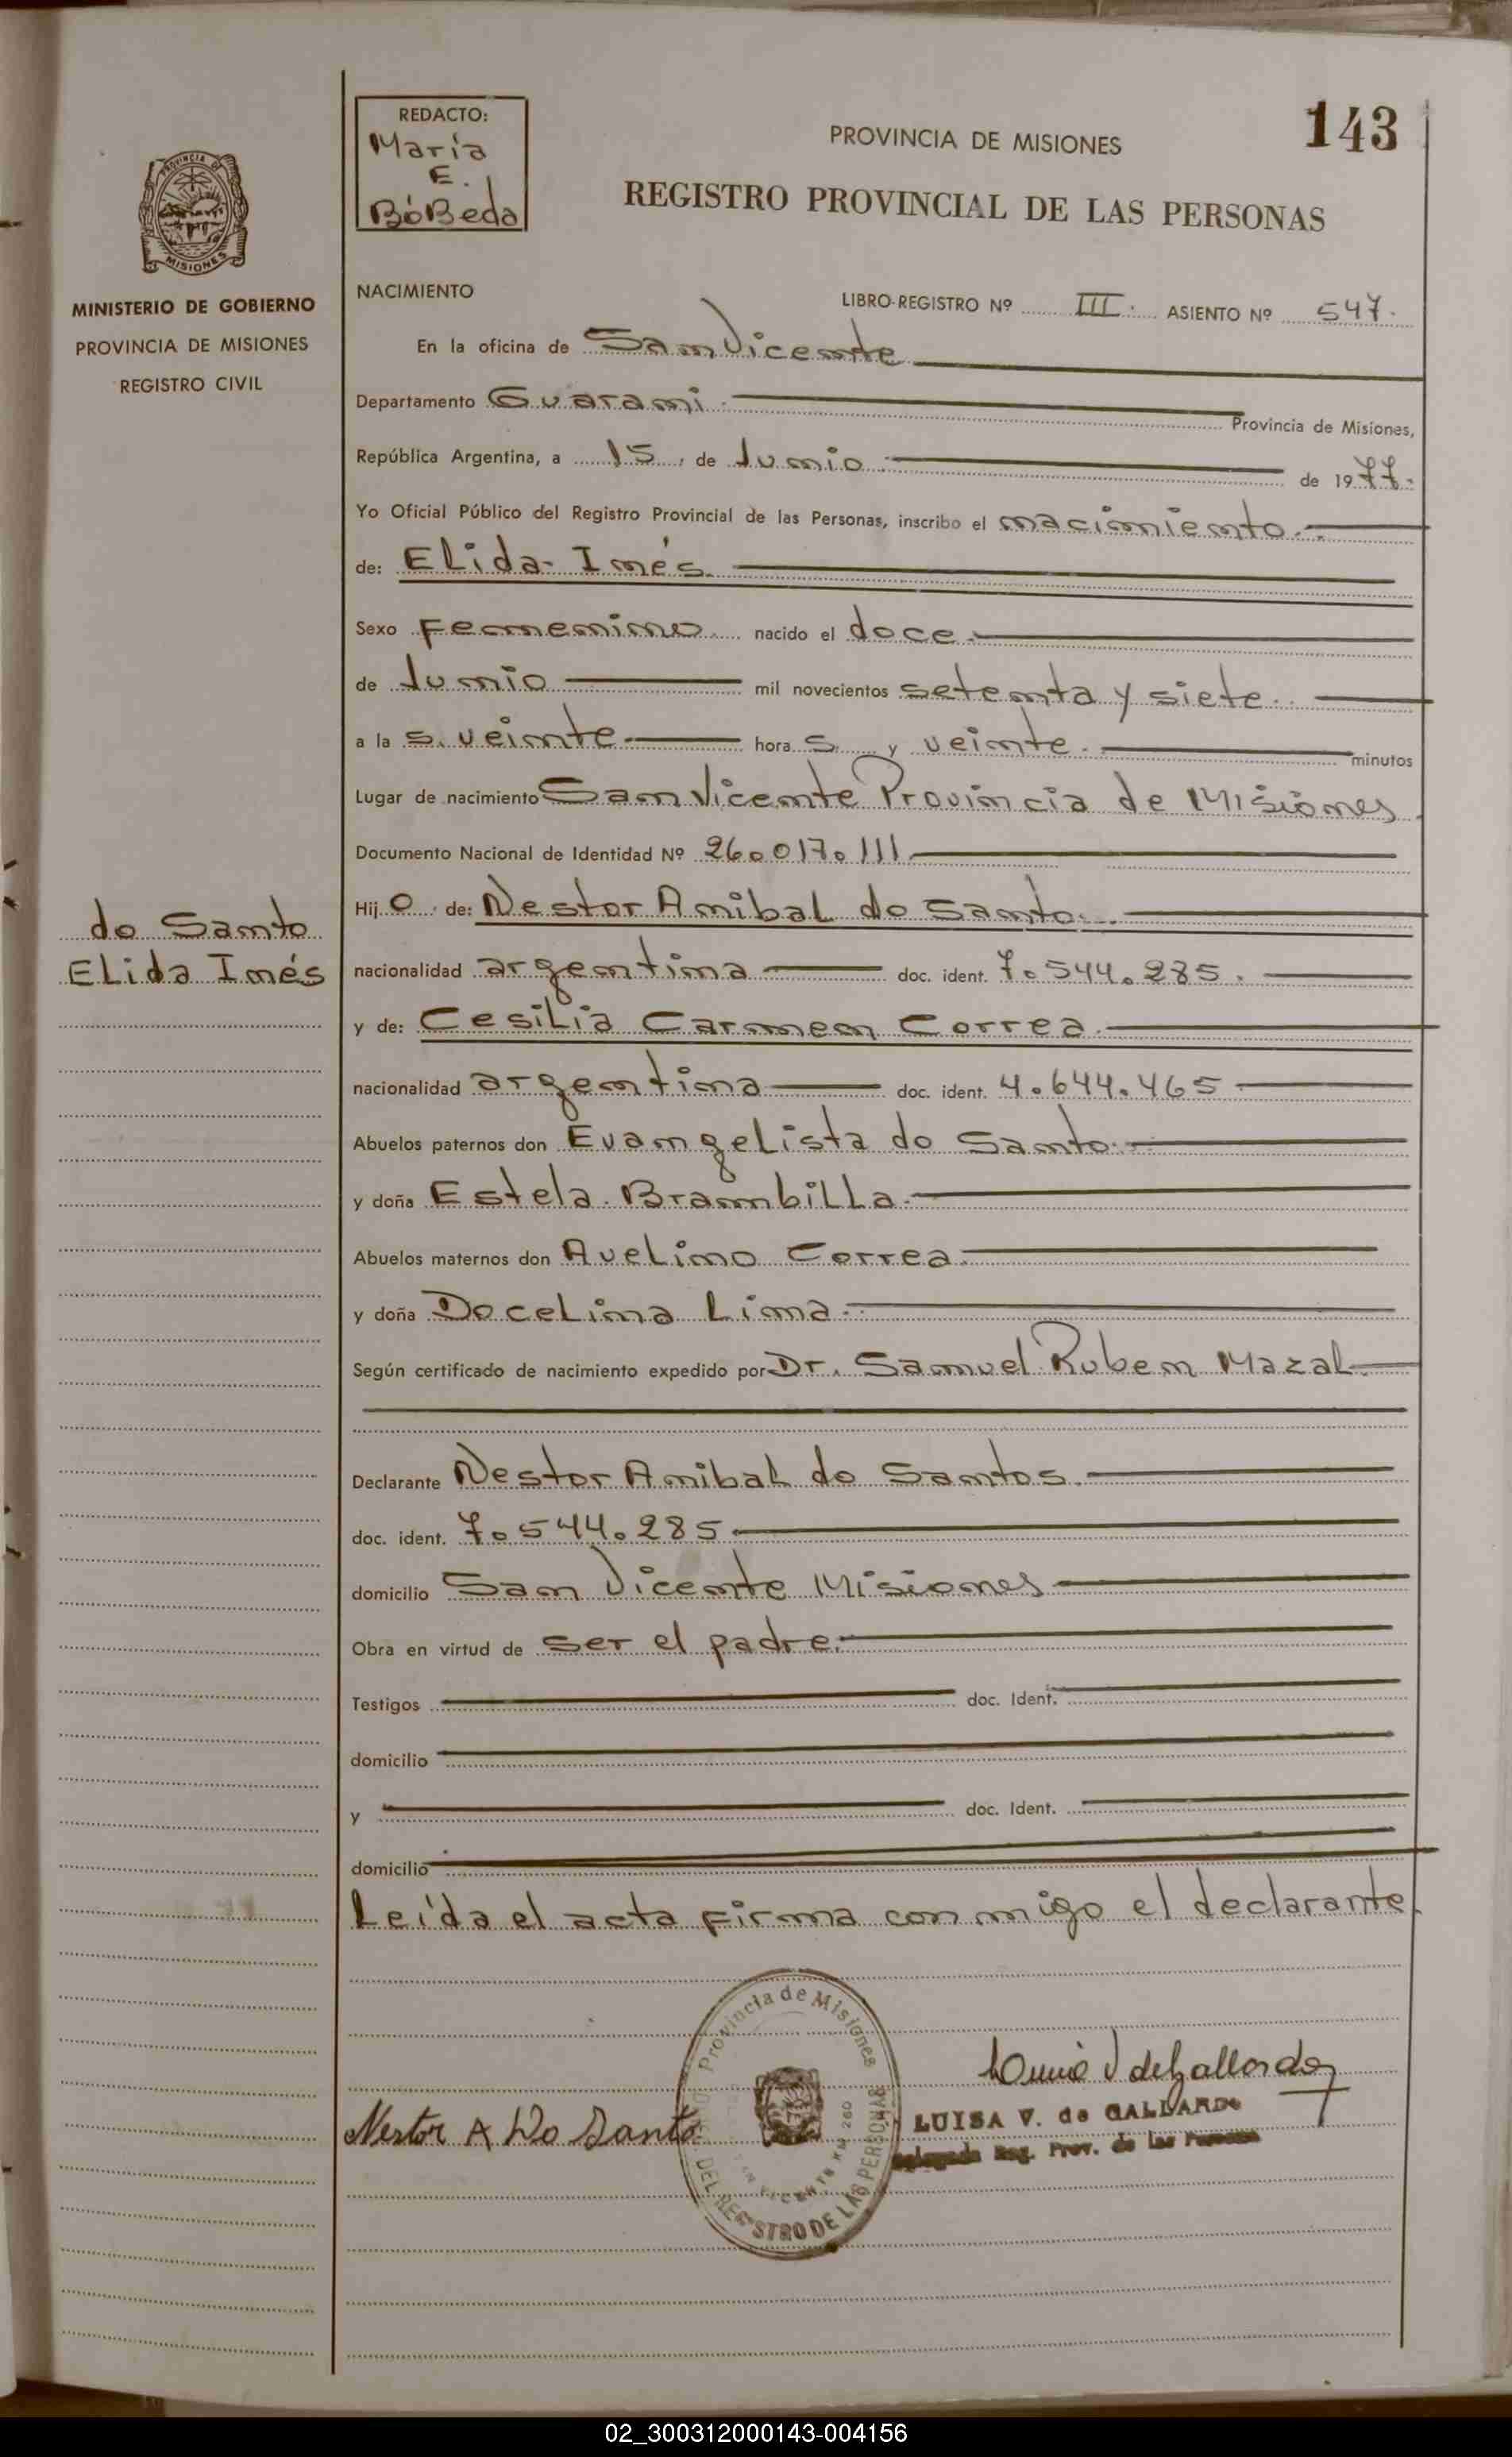 REDACTO:
María
E.
BóBeda
PROVINCIA DE MISIONES
143
REGISTRO PROVINCIAL DE LAS PERSONAS
PROVINCIA DE
MISIONES
MINISTERIO DE GOBIERNO
PROVINCIA DE MISIONES
REGISTRO CIVIL
NACIMIENTO
LIBRO-REGISTRO Nº III. ASIENTO Nº 547.
En la oficina de San Vicente
Departamento Guarani. Provincia de Misiones,
República Argentina, a 15, de Junio de 1977.
Yo Oficial Público del Registro Provincial de las Personas, inscribo el nacimiento.
de: Elida Inés.
Sexo Femenino nacido el doce
de Junio mil novecientos setenta y siete.
a la s. veinte hora s. y veinte. minutos
Lugar de nacimiento San Vicente Provincia de Misiones
Documento Nacional de Identidad Nº 26.017.111
do Santo
Elida Inés
Hij o de: Nestor Anibal do Santo.
nacionalidad argentina doc. ident. 7.544.285.
y de: Cesilia Carmen Correa.
nacionalidad argentina doc. ident. 4.644.465
Abuelos paternos don Evangelista do Santo.
y doña Estela Brambilla.
Abuelos maternos don Avelino Correa.
y doña Docelina Lima.
Según certificado de nacimiento expedido por Dr. Samuel Ruben Mazal.
Declarante Nestor Anibal do Santos.
doc. ident. 7.544.285
domicilio San Vicente Misiones
Obra en virtud de ser el padre.
Testigos doc. Ident.
domicilio
y doc. Ident.
domicilio
Leída el acta firma conmigo el declarante.
Provincia de Misiones
DEL REGISTRO DE LAS PERSONAS
SAN VICENTE KM 260
Nestor A Do Santo
LUISA V. de GALLARDO
Delegada Reg. Prov. de las Personas
02_300312000143-004156